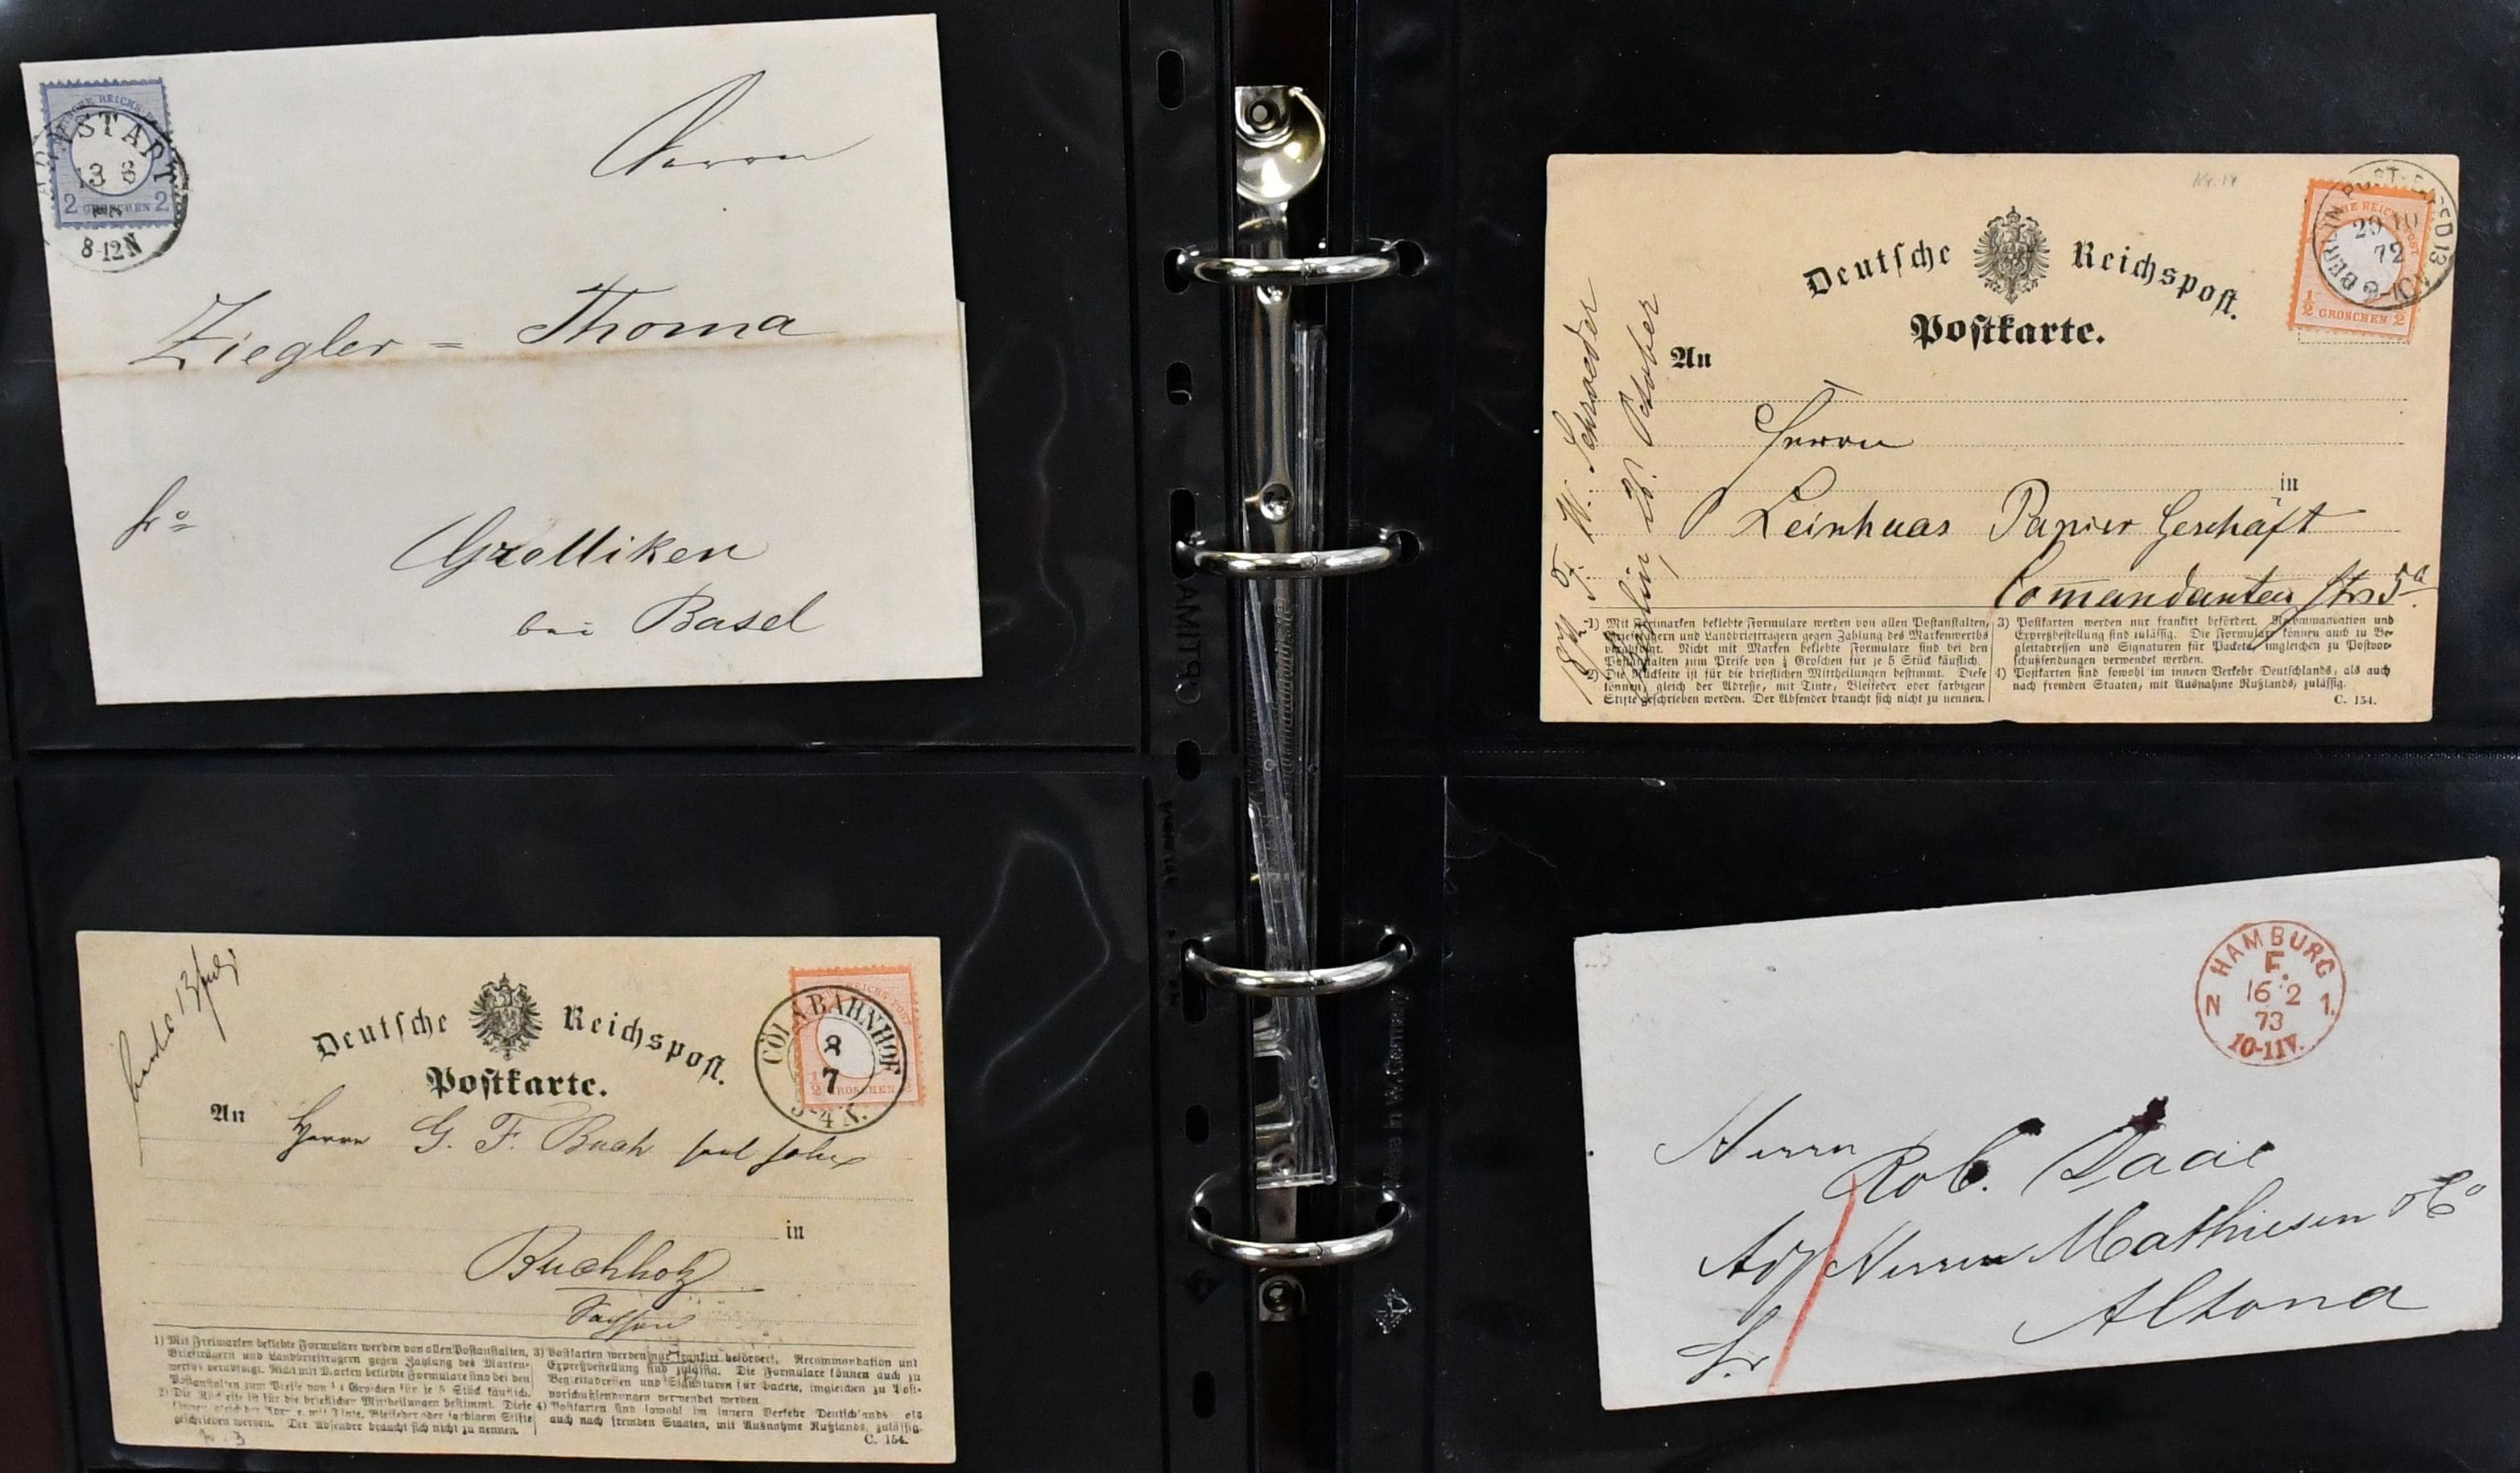 Herrn
Ziegler = Thoma
fro
bei Basel
DEUTSCHE REICHS-POST
13 8
8-12N
2 GROSCHEN 2
Deutſche Reichspoſt.
Poſtkarte.
An
Herrn
in
Leinhaas Papier Geschäft
Commandanten Str. 5a
1872 F. W. Schroeder
Berlin, 28. October
BERLIN POST-EXPED 13
29 10
72
8-10
½ GROSCHEN ½
1) Mit Freimarken beklebte Formulare werden von allen Poſtanſtalten,
Briefträgern und Landbriefträgern gegen Zahlung des Markenwerths
verabfolgt. Nicht mit Marken beklebte Formulare ſind bei den
Poſtanſtalten zum Preiſe von ¼ Groſchen für je 5 Stück käuflich.
2) Die Rückſeite iſt für die brieflichen Mittheilungen beſtimmt. Dieſe
können, gleich der Adreſſe, mit Tinte, Bleifeder oder farbigem
Stifte geſchrieben werden. Der Abſender braucht ſich nicht zu nennen.
3) Poſtkarten werden nur frankirt befördert. Recommandation und
Expreßbeſtellung ſind zuläſſig. Die Formulare können auch zu Be-
gleitadreſſen und Signaturen für Packete, imgleichen zu Poſtvor-
ſchußſendungen verwendet werden.
4) Poſtkarten ſind ſowohl im innern Verkehr Deutſchlands, als auch
nach fremden Staaten, mit Ausnahme Rußlands, zuläſſig.
C. 154.
OPTIMA
Deutſche Reichspoſt.
Poſtkarte.
An
Herrn G. F. Bach
in
Buchholz
Sachsen
CÖLN BAHNHOF
8
7
3-4 N.
½ GROSCHEN ½
1) Mit Freimarken beklebte Formulare werden von allen Poſtanſtalten,
Briefträgern und Landbriefträgern gegen Zahlung des Marken-
werths verabfolgt. Nicht mit Marken beklebte Formulare ſind bei den
Poſtanſtalten zum Preiſe von ¼ Groſchen für je 5 Stück käuflich.
2) Die Rückſeite iſt für die brieflichen Mittheilungen beſtimmt. Dieſe
können, gleich der Adreſſe, mit Tinte, Bleifeder oder farbigem Stifte
geſchrieben werden. Der Abſender braucht ſich nicht zu nennen.
3) Poſtkarten werden nur frankirt befördert. Recommandation und
Expreßbeſtellung ſind zuläſſig. Die Formulare können auch zu
Begleitadreſſen und Signaturen für Packete, imgleichen zu Poſt-
vorſchußſendungen verwendet werden.
4) Poſtkarten ſind ſowohl im innern Verkehr Deutſchlands als
auch nach fremden Staaten, mit Ausnahme Rußlands, zuläſſig.
C. 154.
Made in W. Germany
HAMBURG
F.
16 2
73
N 1.
10-11V.
Herrn
Rob.
Adr Herren Mathiesen & Co
Altona
fr